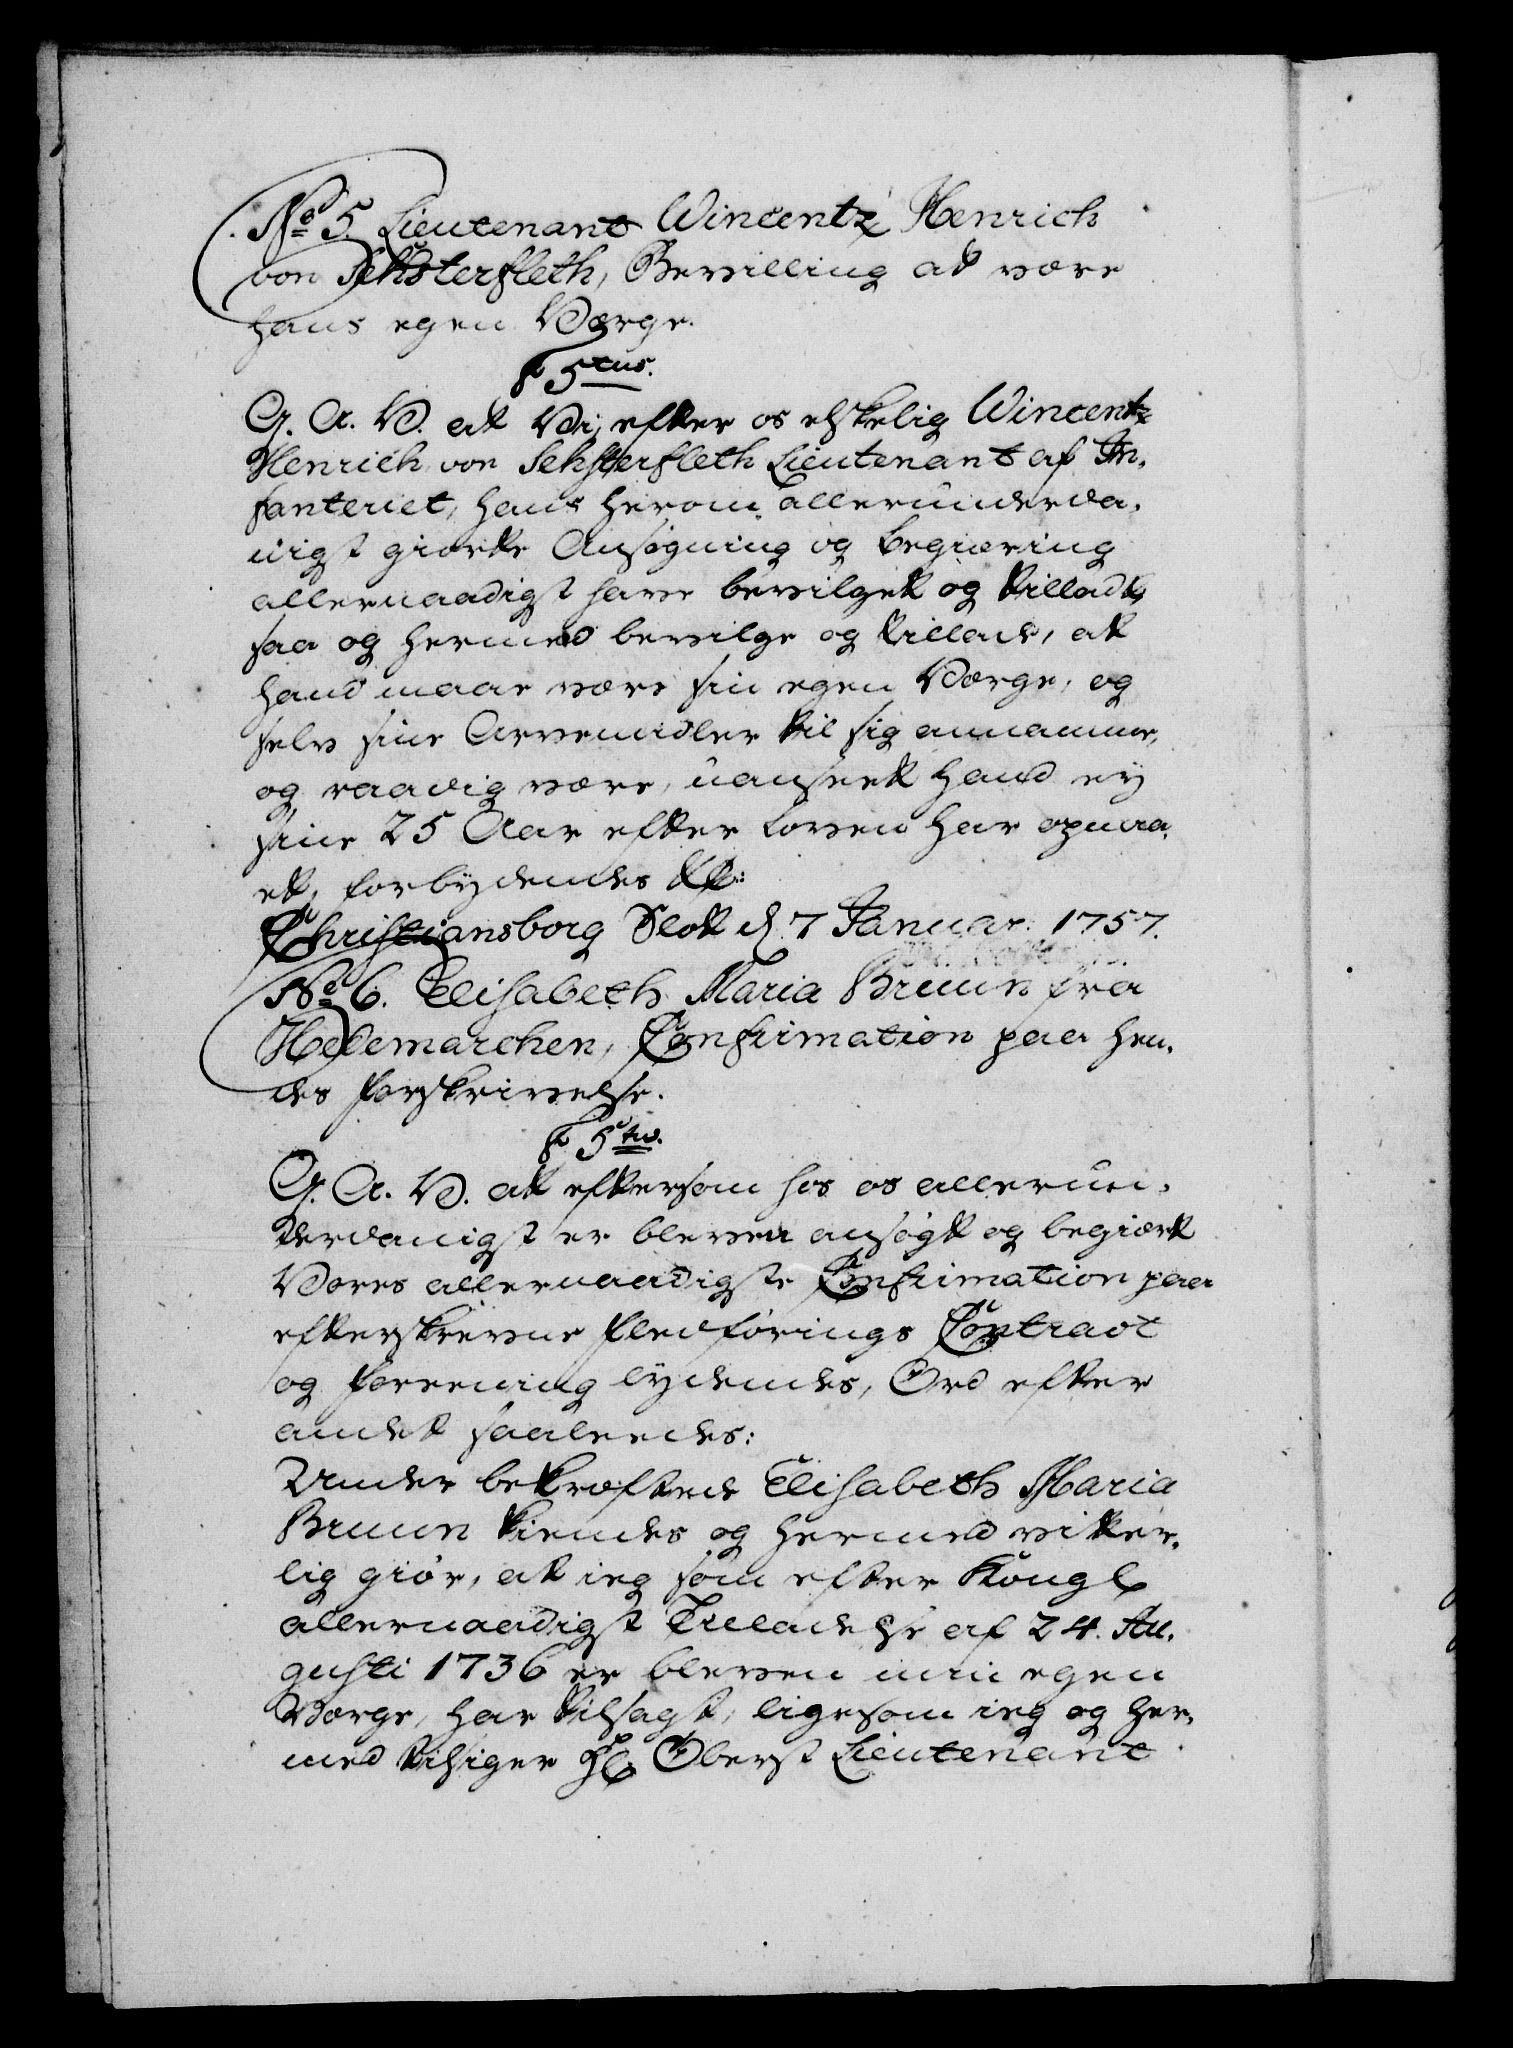 No 5 Lieutenant Wincentz Henrich
von Sehsterfleth, Bevilling at være
hans egen Værge.
F 5tus.
G. A. V. at Vi, efter os elskelig Wincentz
Henrich von Sehsterfleth Lieutenant af In,
fanteriet, hans herom allerunderda,
nigst giorte Ansøgning og begiæring
allernaadigst have bevilget og tilladt,
saa og hermed bevilge og tillade, at
hand maae være sin egen Værge, og
selv sine Arvemidler til sig annamme,
og raadig være, uanseet hand ey
sine 25 Aar efter Loven har opnaa,
et, forbydendes
Christiansborg Slot d. 7 Januar: 1757.
No 6. Elisabeth Maria Bruun fra
Hedemarchen, Confirmation paa hen,
des forskrivelse.
F 5tus.
G. A. V. at eftersom hos os allerun,
derdanigst er bleven ansøgt og begiært
Vores allernaadigste Confirmation paa
efterskrevne fledførings Contract
og foreening lydendes, Ord efter
andet saaleedes:
Under bekræftede Elisabeth Maria
Bruun kiendes og hermed vitter,
lig giør, at ieg som efter Kongl.
allernaadigst Tilladelse af 24. Au,
gusti 1736 er bleven min egen
Værge, har tilsagt, ligesom ieg og her,
med tilsiger Hr. Oberst Lieutenant